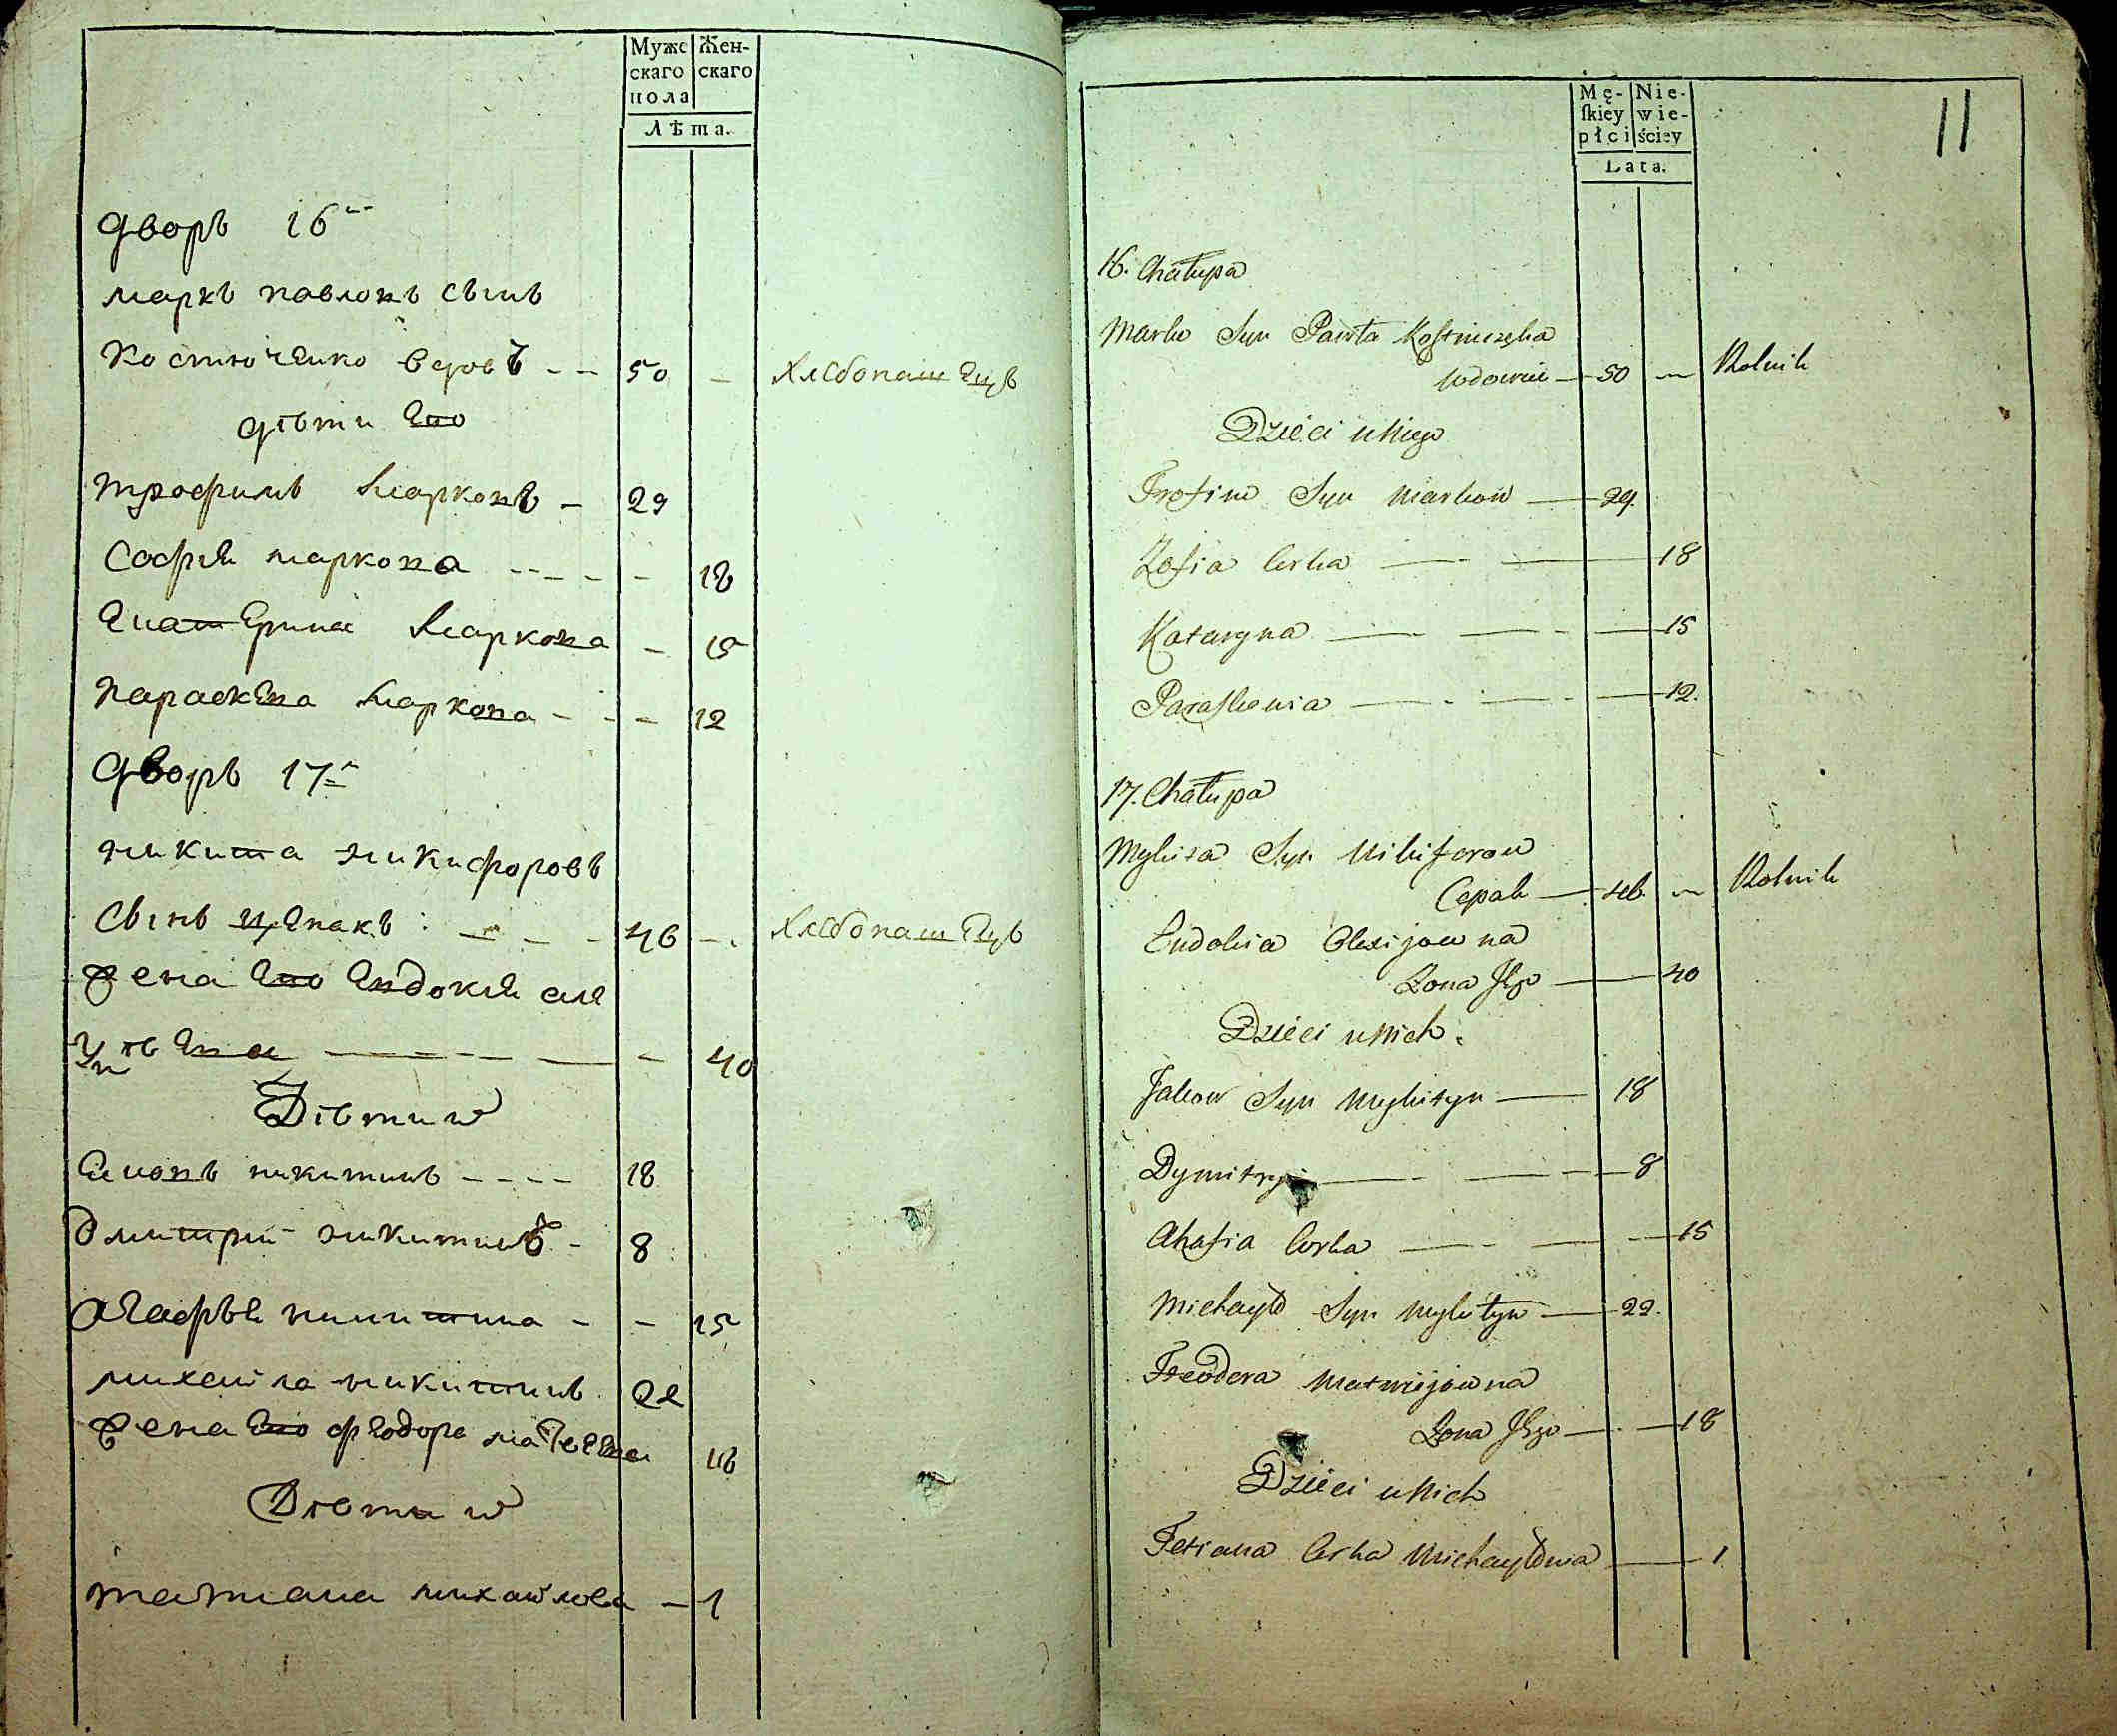 Муже
скаго
пола
Жен-
скаго
Лѣта.
дворъ 16й
маркъ павловъ сынъ
костюченко вдовъ - - 50 - хлебопашецъ
дѣти его
трофимъ марковъ - 29
софия маркова - - - - - 18
екатерина маркова - 15
параскева маркова - - - 12
дворъ 17й
никита никифоровъ
сынъ цепакъ : - - - 46 - . хлебопашецъ
жена его евдокия але
- 40
Дѣти ихъ
яковъ никитинъ - - - - 18
дмитрий никитинъ - 8
агафья никитина - - 15
михайла никитинъ 22
жена его феодора матвеева 18
Дѣти ихъ
татиана михайлова - 1
Mę-
ſkiey
płci
Nie-
wie-
ściey
Lata.
11
16. Chałupa
Marko Syn Pawła Kostiuczęka
Wdowiec — 50 — Rolnik
Dzieci u Niego
Trofim Syn Markow — 29.
Zofia Corka — 18
Kataryna — 15
Paraskewia — 12.
17. Chałupa
Mykita Syn Nikiforow
Cepak — 46 — Rolnik
Eudokia Olexijowna
Zona Jego — 40
Dzieci u Nich.
Jakow Syn Mykityn — 18
Dymitryi — 8
Ahafia Corka — 15
Michayło Syn Mykityn — 22.
Feodora Matwiejowna
Zona Jego — 18
Dzieci u Nich
Tetiana Corka Michayłowa — 1